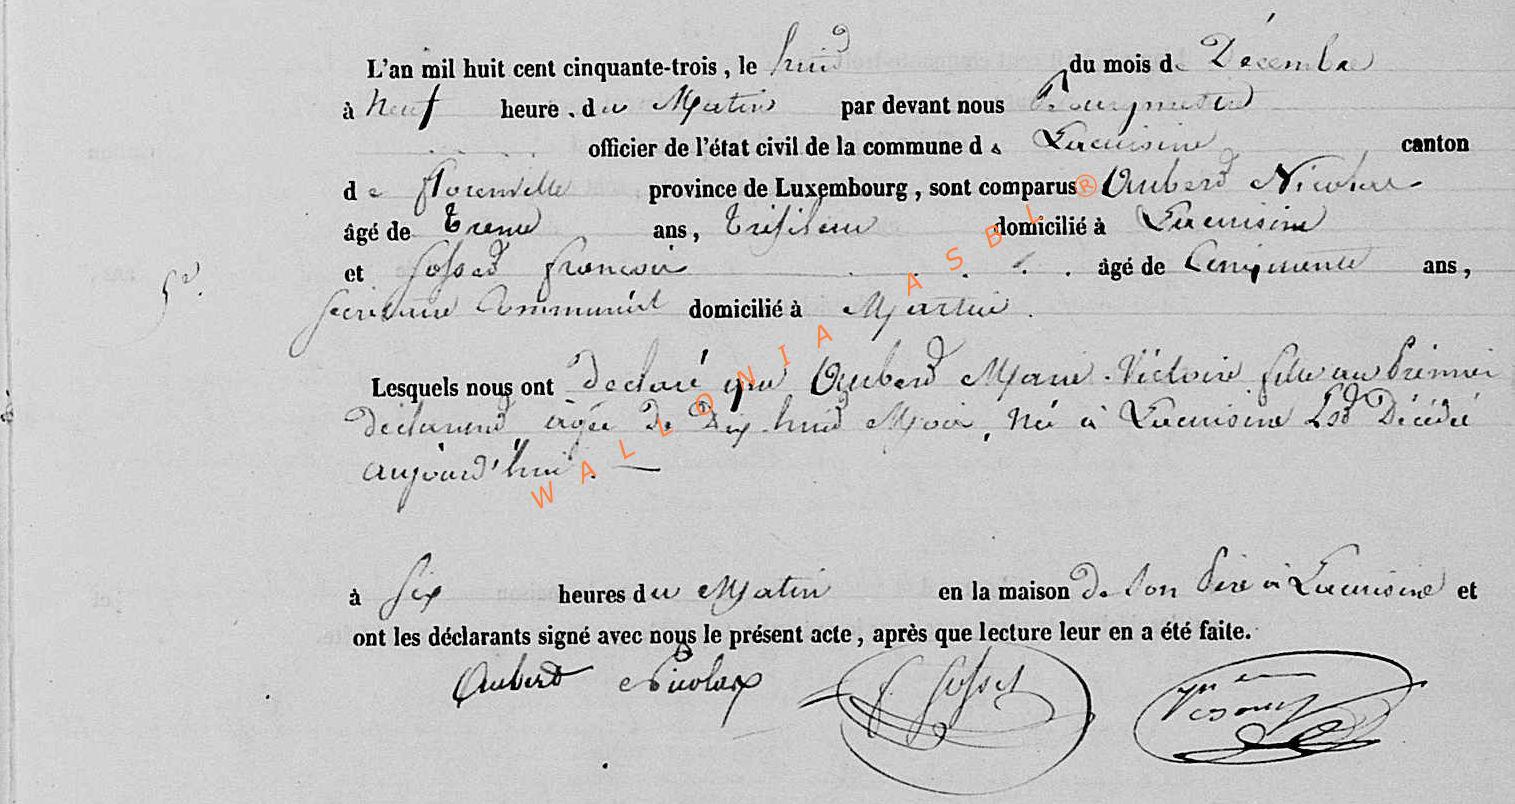 L'an mil huit cent cinquante-trois, le huid du mois de Décembre
à neuf heure. du Matin par devant nous Bourgmestre
officier de l'état civil de la commune de Lacuisine canton
de florenville province de Luxembourg, sont comparus Aubert Nicolas
âgé de trente ans, Trifileur domicilié à Lacuisine
et Gosset françois âgé de Cinquante ans,
5d.
secrétaire Communal domicilié à Martué.
Lesquels nous ont déclaré que Aubert Marie-Victoire fille au Prémier
déclarant âgée de Dix huid Mois, Né à Lacuisine Est Décédé
aujourd'hui. —
à six heures du Matin en la maison de son Père à Lacuisine et
ont les déclarants signé avec nous le présent acte, après que lecture leur en a été faite.
Aubert Nicolas f. Gosset
® WALLONIA ASBL